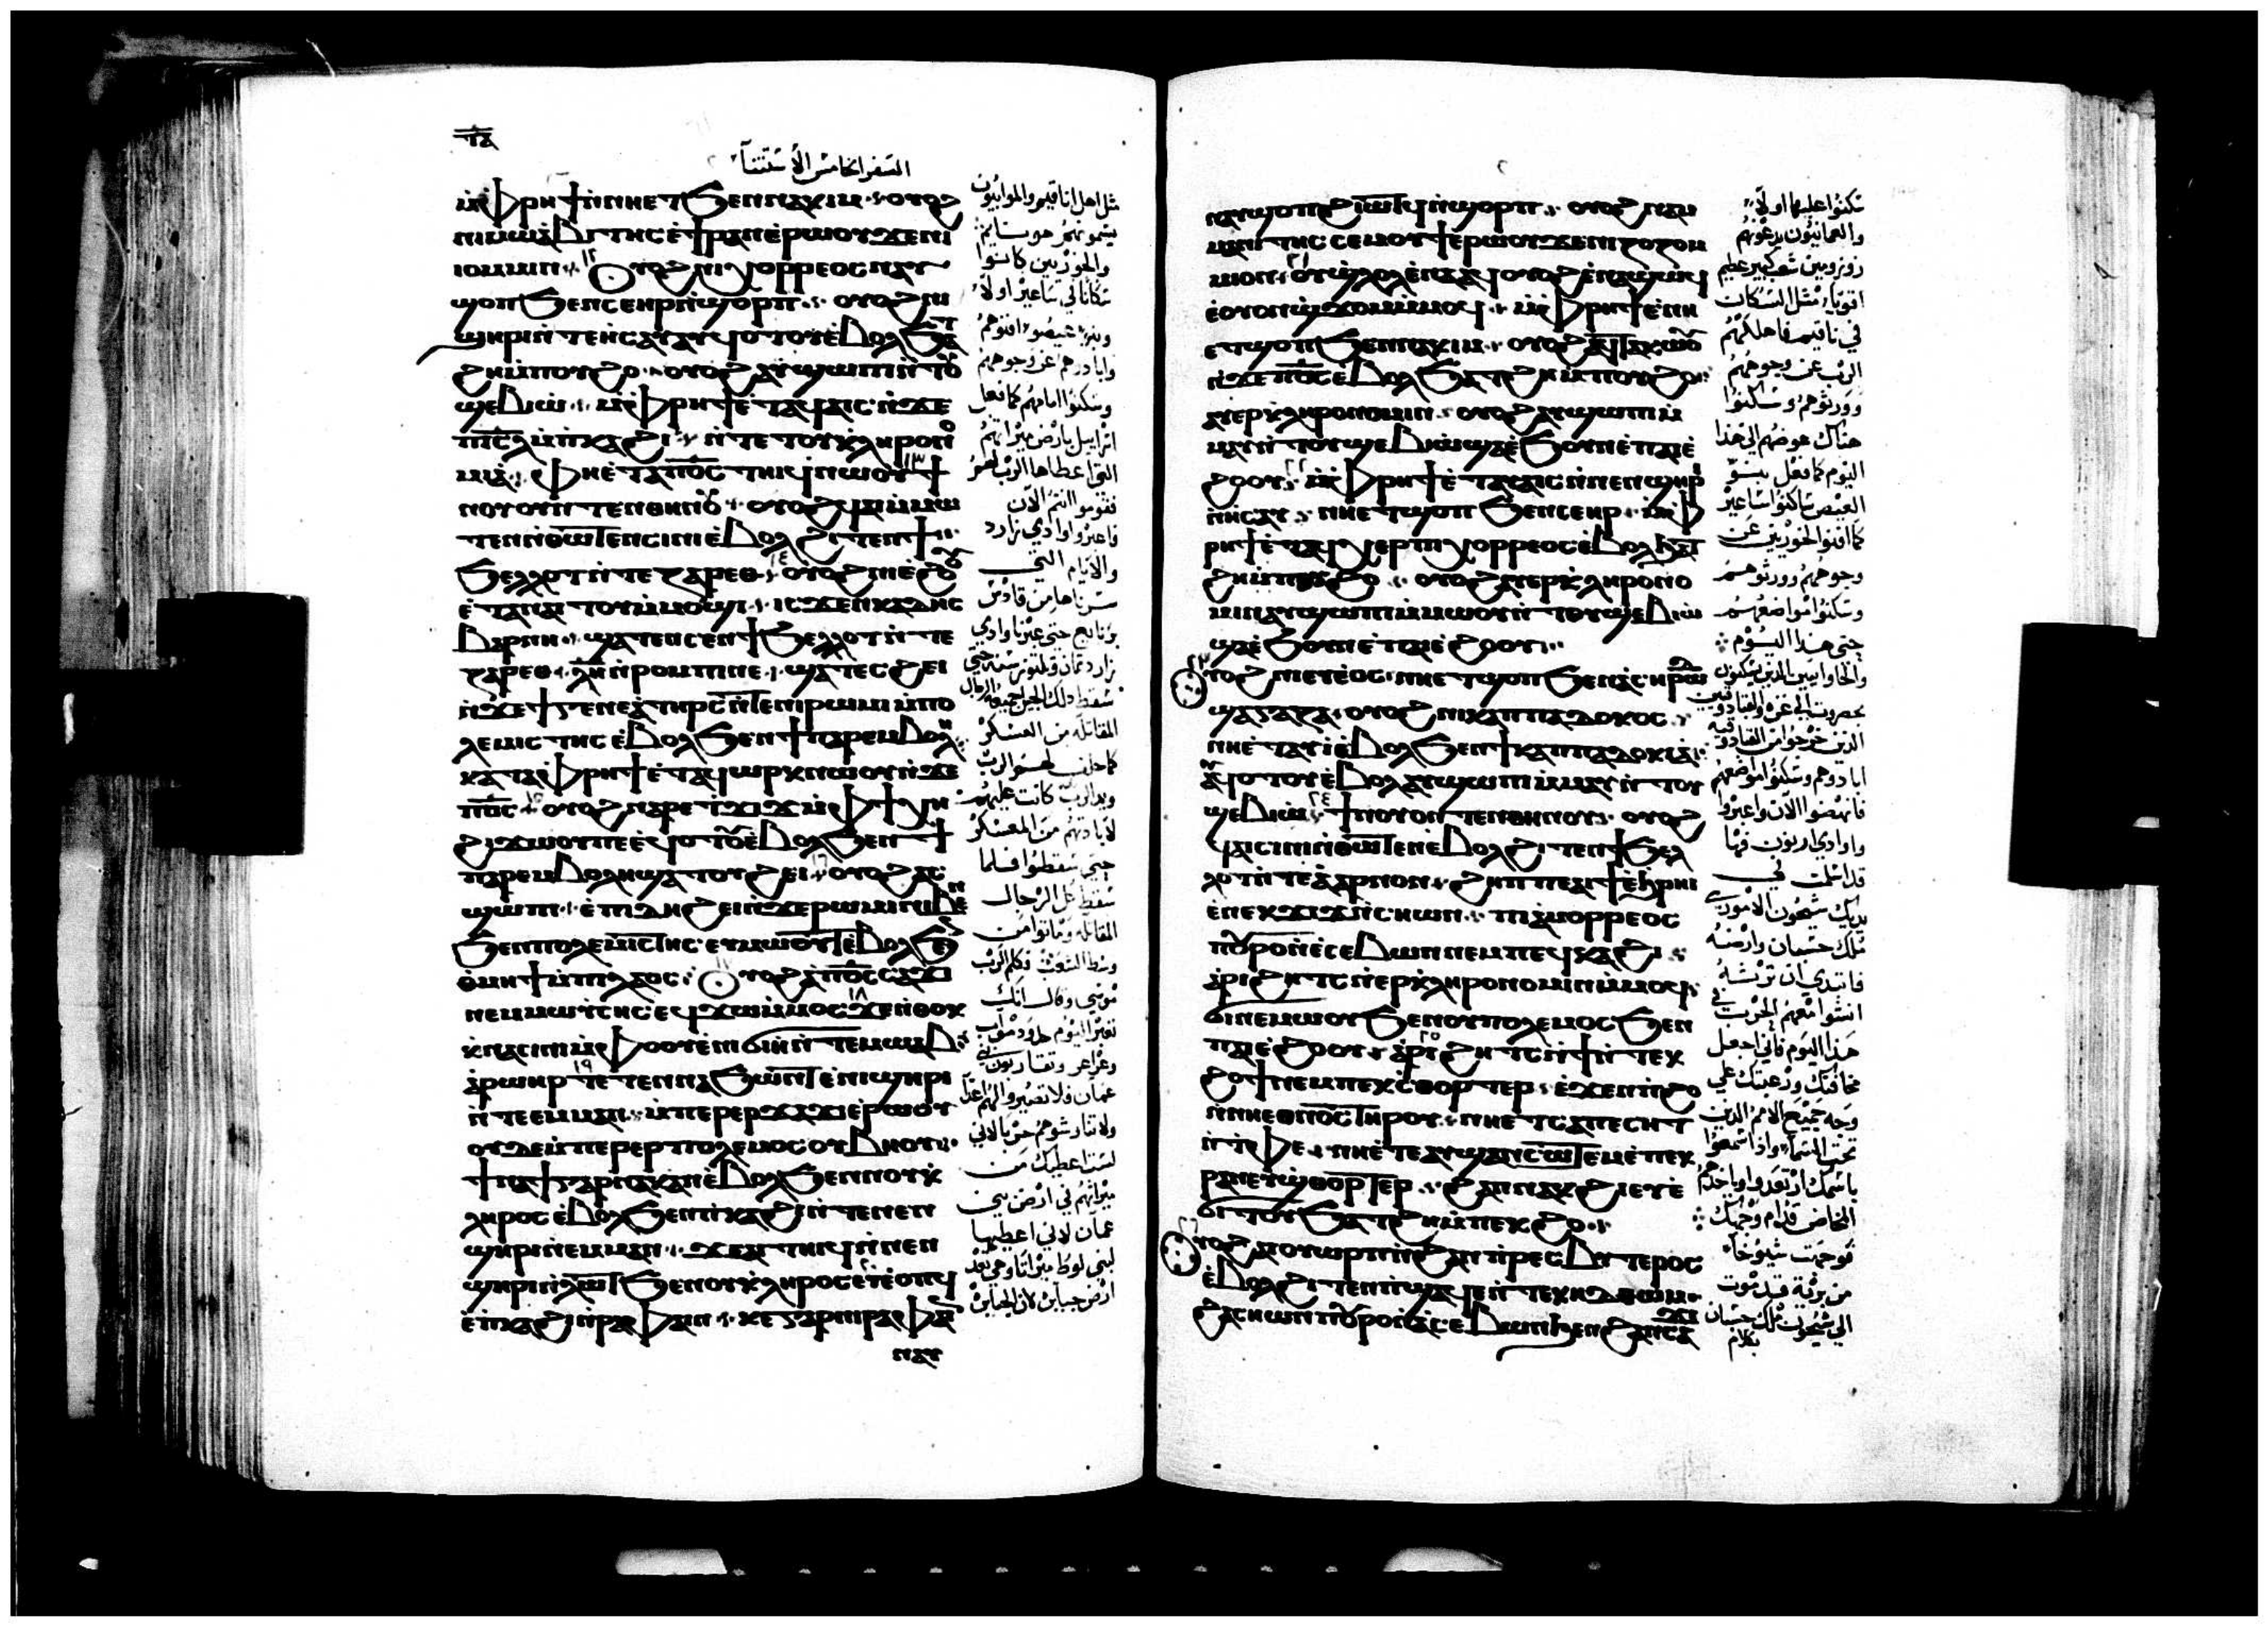 السفر الخامس الاستثنا
ⲙ̀ⲫⲣⲏϯ ⲛ̀ⲛⲏⲉⲧϧⲉⲛⲛⲁⲭⲓⲙ ⲟⲩⲟϩ
ⲛⲓⲙⲱⲁⲃⲓⲧⲏⲥ ⲉ̀ϯⲣⲁⲛ ⲉ̀ⲣⲱⲟⲩ ϫⲉ ⲛⲓ
ⲟⲙⲙⲓⲛ ⲟⲩⲟϩ ⲛⲓⲭⲟⲣⲣⲉⲟⲥ ⲛⲁⲩ
ϣⲟⲡ ϧⲉⲛ ⲥⲉⲏⲣ ⲛ̀ϣⲟⲣⲡ ⲟⲩⲟϩ ⲛⲓ
ϣⲏⲣⲓ ⲛ̀ⲧⲉ ⲏ̀ⲥⲁⲩ ⲁⲩϥⲟⲧⲟⲩ ⲉ̀ⲃⲟⲗ ϧⲁⲧ
ϩⲏ ⲙ̀ⲡⲟⲩϩⲟ ⲟⲩⲟϩ ⲁⲩϣⲱⲡⲓ ⲛ̀ⲧⲟⲩ
ϣⲉⲃⲓⲱ ⲙ̀ⲫⲣⲏϯ ⲉ̀ⲧⲁϥⲁⲓⲥ ⲛ̀ϫⲉ
ⲡⲓⲥⲗ ⲙ̀ⲡⲕⲁϩⲓ ⲛ̀ⲧⲉ ⲧⲟⲩⲕⲗⲏⲣⲟⲛⲟ
ⲙⲓⲁ ⲫⲏⲉ̀ⲧⲁ ⲡⲟⲥ ⲧⲏⲓϥ ⲛⲱⲟⲩ ϯ
ⲛⲟⲩ ⲟⲩⲛ ⲧⲉⲛⲑⲏⲛⲟⲩ ⲟⲩⲟϩ
ⲧⲉⲛ ⲛ̀ⲑⲱⲧⲉⲛ ⲥⲓⲛⲓ ⲉ̀ⲃⲟⲗ ϩⲓⲧⲉⲛ ϯ
ϧⲉⲗⲗⲟⲧ ⲛ̀ⲧⲉ ⲍⲁⲣⲉⲑ ⲟⲩⲟϩ ⲛⲓⲉ̀ϩⲟⲟⲩ
ⲉ̀ⲧⲁⲛⲁⲩⲧⲟⲩ ⲙ̀ⲙⲟϣⲓ ⲓⲥϫⲉⲛ ⲕⲁⲇⲏⲥ
ⲃⲁⲣⲛⲏ ϣⲁⲧⲉⲛⲥⲉⲛ ϯϧⲉⲗⲗⲟⲧ ⲛ̀ⲧⲉ
ⲍⲁⲣⲉⲑ ⲗⲏ ⲛ̀ⲣⲟⲙⲡⲓ ⲡⲉ ϣⲁⲧⲉⲥϩⲉⲓ
ⲛ̀ϫⲉ ϯⲅⲉⲛⲉⲁ ⲧⲏⲣⲥ ⲛ̀ⲧⲉ ⲛⲓⲣⲱⲙⲓ ⲙ̀ⲡⲟ
ⲗⲉⲙⲓⲥⲧⲏⲥ ⲉ̀ⲃⲟⲗ ϧⲉⲛ ϯⲡⲁⲣⲉⲙⲃⲟⲗⲏ
ⲕⲁⲧⲁ ⲫⲣⲏϯ ⲉ̀ⲧⲁϥⲱⲣⲕ ⲛⲱⲟⲩ ⲛ̀ϫⲉ
ⲡⲟⲥ ⲟⲩⲟϩ ⲛⲁⲣⲉ ⲧϫⲓϫ ⲙ̀ⲫϯ ⲭⲏ
ϩⲓϫⲱⲟⲩ ⲡⲉ ⲉϥⲟⲧⲟⲩ ⲉ̀ⲃⲟⲗ ϧⲉⲛ ϯ
ⲡⲁⲣⲉⲙⲃⲟⲗⲏ ϣⲁⲧⲟⲩϩⲉⲓ ⲟⲩⲟϩ ⲁⲥ
ϣⲱⲡⲓ ⲉ̀ⲡⲓⲇⲏ ϩⲉⲓ ⲛ̀ϫⲉ ⲣⲱⲙⲓ ⲛⲓⲃⲉⲛ
ϧⲉⲛ ⲡⲟⲗⲉⲙⲓⲥⲧⲏⲥ ⲉⲩⲙⲱⲟⲩⲧ ⲉ̀ⲃⲟⲗ ϧⲉⲛ
ⲑⲙⲏϯ ⲙ̀ⲡⲓⲗⲁⲟⲥ ⲟⲩⲟϩ ⲁ ⲡⲟⲥ ⲥⲁϫⲓ
ⲛⲉⲙ ⲙⲱⲩⲥⲏⲥ ⲉϥϫⲱ ⲙ̀ⲙⲟⲥ ϫⲉ ⲛ̀ⲑⲟⲕ
ⲭⲛⲁⲥⲓⲛⲓ ⲙ̀ⲫⲟⲟⲩ ⲉ̀ⲛⲓϭⲓⲏ ⲛ̀ⲧⲉ ⲙⲱⲁⲃ
ⲁ̀ⲣⲱⲏⲣ ⲧⲉⲧⲉⲛⲛⲁϧⲱⲛⲧ ⲉ̀ⲛⲓϣⲏⲣⲓ
ⲛ̀ⲧⲉ ⲉⲙⲙⲁⲛ ⲙ̀ⲡⲉⲣⲉⲣϫⲁϫⲓ ⲉ̀ⲣⲱⲟⲩ
ⲟⲩⲇⲉ ⲙ̀ⲡⲉⲣⲉⲣⲡⲟⲗⲉⲙⲟⲥ ⲟⲩⲃⲏⲟⲩ
ϯⲛⲁϯ ⲅⲁⲣ ⲛⲁⲕ ⲁⲛ ⲉ̀ⲃⲟⲗ ϧⲉⲛ ⲡⲟⲩⲕ
ⲗⲏⲣⲟⲥ ⲉ̀ⲃⲟⲗ ϧⲉⲛ ⲡⲕⲁϩⲓ ⲛ̀ⲧⲉ ⲛⲉⲛ
ϣⲏⲣⲓ ⲛ̀ⲉⲙⲙⲁⲛ ϫⲉ ⲁⲓⲧⲏⲓϥ ⲛ̀ⲛⲉⲛ
ϣⲏⲣⲓ ⲛ̀ⲗⲱⲧ ϧⲉⲛ ⲟⲩⲕⲗⲏⲣⲟⲥ ⲉⲩⲉ̀ⲟⲡϥ
ⲉ̀ⲡⲕⲁϩⲓ ⲛ̀ⲣⲁⲫⲁⲓⲛ ⲕⲉ ⲅⲁⲣ ⲛⲓⲣⲁⲫⲁⲓⲛ
ⲛⲁⲩ
مثل اهل اناقيم والموابيون
يسمونهم هوسايم
والخورين كانوا
سكانا في ساعير اولا
وبنو عيصو افنوهم
وابادوهم عن وجوههم
وسكنوا امامهم كما فعل
اسرايل بارض ميراثهم
التى اعطاها الرب لهم
فقوموا انتم الان
فاعبروا وادي زارد
والايام التي
سرناها من قادس
برنايع حتى عبرنا وادي
زارد ثمان وثلثون سنه حتى
سقط ذلك الجيل جميعه الرجال
المقاتله من العسكر
كما حلف لهم الرب
ويد الرب كانت عليهم
لابادتهم من المعسكر
حتى سقطوا فلما
سقط كل الرجال
المقاتله وماتوا من
وسط الشعب فكلم الرب
موسى وقال انك
تعبر اليوم حدود مواب
وعراعر وتقتربون بني
عمان فلا تصيروا لهم اعدا
ولا تنارشوهم حربا لاني
لست اعطيك من
ميراثهم في ارض بني
عمان لاني اعطيها
لبني لوط ميراثا وهي تعد
ارض جبابن لان الجبابن
ⲛⲁⲩϣⲟⲡ ϩⲓⲱⲧϥ ⲛ̀ϣⲟⲣⲡ ⲟⲩⲟϩ ⲛⲓⲁⲙ
ⲙⲁⲛⲓⲧⲏⲥ ⲥⲉⲙⲟⲩϯ ⲉ̀ⲣⲱⲟⲩ ϫⲉ ⲛⲓⲍⲟⲍⲟⲙ
ⲙⲓⲛ ⲟⲩϣⲗⲟⲗ ⲉ̀ⲛⲁϥ ⲟⲩⲟϩ ⲉ̀ⲛⲁϣⲱϥ
ⲉ̀ⲟⲩⲟⲛϣϫⲟⲙ ⲙ̀ⲙⲟϥ ⲙ̀ⲫⲣⲏϯ ⲉ̀ⲛⲏ
ⲉⲧϣⲟⲡ ϧⲉⲛ ⲛⲁⲭⲓⲙ ⲟⲩⲟϩ ⲁϥⲧⲁⲕⲱⲟⲩ
ⲛ̀ϫⲉ ⲡⲟⲥ ⲉ̀ⲃⲟⲗ ϧⲁⲧϩⲏ ⲙ̀ⲡⲟⲩϩⲟ
ⲁⲩⲉⲣⲕⲗⲏⲣⲟⲛⲟⲙⲓⲛ ⲟⲩⲟϩ ⲁⲩϣⲱⲡⲓ ⲙ̀
ⲙⲁⲩ ⲛ̀ⲧⲟⲩϣⲉⲃⲓⲱ ϣⲁⲉ̀ϧⲟⲩⲛ ⲉ̀ⲡⲁⲓⲉ̀
ϩⲟⲟⲩ ⲙ̀ⲫⲣⲏϯ ⲉ̀ⲧⲁⲩⲁⲓⲥ ⲛ̀ⲛⲉⲛϣⲏⲣⲓ
ⲛ̀ⲏⲥⲁⲩ ⲛⲏⲉⲧϣⲟⲡ ϧⲉⲛ ⲥⲉⲏⲣ ⲙ̀ⲫ
ⲣⲏϯ ⲉ̀ⲧⲁϥϥⲉⲧ ⲛⲓⲭⲟⲣⲣⲉⲟⲥ ⲉ̀ⲃⲟⲗ ϧⲁⲧ
ϩⲏ ⲙ̀ⲡⲟⲩϩⲟ ⲟⲩⲟϩ ⲁⲩⲉⲣⲕⲗⲏⲣⲟⲛⲟ
ⲙⲓⲛ ⲁⲩϣⲱⲡⲓ ⲙ̀ⲙⲱⲟⲩ ⲛ̀ⲧⲟⲩϣⲉⲃⲓⲱ
ϣⲁⲉ̀ϧⲟⲩⲛ ⲉ̀ⲡⲁⲓⲉ̀ϩⲟⲟⲩ
ⲟⲩⲟϩ ⲛⲓⲉⲩⲉⲟⲥ ⲛⲏⲉⲧϣⲟⲡ ϧⲉⲛ ⲁⲥⲏⲣⲱⲑ
ϣⲁ ⲅⲁⲍⲁ ⲟⲩⲟϩ ⲛⲓⲕⲁⲡⲡⲁⲇⲟⲕⲟⲥ
ⲛⲏⲉ̀ⲧⲁⲩⲓ̀ ⲉ̀ⲃⲟⲗ ϧⲉⲛ ϯⲕⲁⲡⲡⲁⲇⲟⲕⲓⲁ
ⲁⲩϥⲟⲧⲟⲩ ⲉ̀ⲃⲟⲗ ⲁⲩϣⲱⲡⲓ ⲙ̀ⲙⲁⲩ ⲛ̀ⲧⲟⲩ
ϣⲉⲃⲓⲱ ϯⲛⲟⲩ ⲟⲩⲛ ⲧⲉⲛⲑⲏⲛⲟⲩ ⲟⲩⲟϩ
ⲥⲓⲛⲓ ⲛ̀ⲑⲱⲧⲉⲛ ⲉ̀ⲃⲟⲗ ϩⲓⲧⲉⲛ ϯϧⲉⲗ
ⲗⲟⲧ ⲛ̀ⲧⲉ ⲁ̀ⲣⲛⲟⲛ ϩⲏⲡⲡⲉ ⲁⲓϯ ⲉ̀ϧⲣⲏⲓ
ⲉ̀ⲛⲉⲕϫⲓϫ ⲛ̀ⲥⲏⲱⲛ ⲡⲓⲁ̀ⲙⲟⲣⲣⲉⲟⲥ
ⲡⲟⲩⲣⲟ ⲛ̀ⲉⲥⲉⲃⲱⲛ ⲛⲉⲙ ⲡⲉϥⲕⲁϩⲓ
ⲁ̀ⲣⲓϩⲏⲧⲥ ⲛ̀ⲉⲣⲕⲗⲏⲣⲟⲛⲟⲙⲓⲛ ⲙ̀ⲙⲟϥ
ϭⲓ ⲛⲉⲙⲱⲟⲩ ϧⲉⲛ ⲟⲩⲡⲟⲗⲉⲙⲟⲥ ϧⲉⲛ
ⲡⲁⲓⲉ̀ϩⲟⲟⲩ ⲁ̀ⲣⲓϩⲏⲧⲥ ⲛ̀ϯ ⲛ̀ⲧⲉⲕ
ϩⲟϯ ⲛⲉⲙ ⲡⲉⲕⲥⲑⲟⲣⲧⲉⲣ ⲉ̀ϫⲉⲛ ⲡ̀ϩⲟ
ⲛ̀ⲛⲓⲉⲑⲛⲟⲥ ⲧⲏⲣⲟⲩ ⲛⲏⲉⲧⲥⲁⲡⲉⲥⲏⲧ
ⲛ̀ⲧⲫⲉ ⲛⲏⲉ̀ⲧⲉ ⲁⲩϣⲁⲛⲥⲱⲧⲉⲙ ⲉ̀ⲡⲉⲕ
ⲣⲁⲛ ⲉⲩⲉ̀ϣⲑⲟⲣⲧⲉⲣ ϩⲁⲛⲛⲁⲕϩⲓ ⲉⲩⲉ̀
ϭⲓⲧⲟⲩ ϧⲁⲧϩⲏ ⲙ̀ⲡⲉⲕϩⲟ
ⲟⲩⲟϩ ⲁⲓⲟⲩⲱⲣⲡ ⲛ̀ϩⲁⲛⲡⲣⲉⲥⲃⲩⲧⲉⲣⲟⲥ
ⲉ̀ⲃⲟⲗ ϩⲓⲧⲉⲛ ⲡϣⲁϥⲉ ⲛ̀ⲧⲉ ⲕⲏⲇⲉⲙⲱⲑ
ϩⲁ ⲥⲏⲱⲛ ⲡⲟⲩⲣⲟ ⲛ̀ⲉⲥⲉⲃⲱⲛ ϧⲉⲛ ϩⲁⲛⲥⲁϫⲓ
سكنوا عليها اولا
والعمانيون يدعونهم
زوزوميين شعب كبير عظيم
اقويا مثل السكان
في ناقيم فاهلكهم
الرب عن وجوههم
وورثوهم وسكنوا
هناك عوضهم الى هذا
اليوم كما فعل بنو
العيص ساكنوا ساعير
كما افنوا الخوريين عن
وجوههم وورثوهم
وسكنوا مواضعهم
حتى هذا اليوم
والحاوانيين الذين يسكنون
بحصروت الى غزه والقبادوقيين
الذين خرجوا من القبادوقيه
ابادوهم وسكنوا مواضعهم
فانهضوا الان واعبروا
وادي ارنون فها
قد اسلمت في
يديك سيحون الاموري
ملك حسبان وارضه
فابتدي ان ترثه
انشوا معهم الحرب في
هذا اليوم فاني اجعل
مخافتك ورعبتك على
وجه جميع الامم الذين
تحت السما واذا سمعوا
باسمك ارتعدوا واخذهم
المخاض قدام وجهك
فوجهت شيوخا
من برية قدموت
الى سيحون ملك حسبان
بكلام